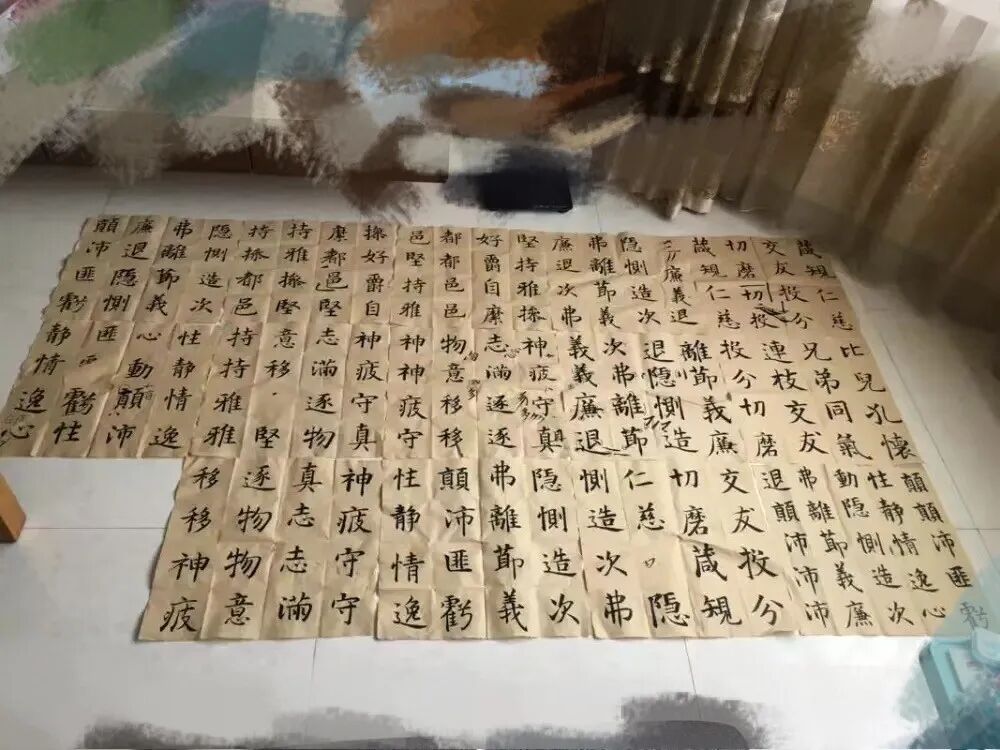 葴規仁慈
交友投分
切磨切投
葴規仁慈
分廉義退
隐惻造次
弗離節義
廉退次弗
堅持雅操
好爵自縻
都都邑邑
邑堅持雅
操好爵自
縻都邑堅
持雅操堅
持操都邑
隐惻造次
弗離節義
廉退隐惻
顛沛匪虧
比兒孔懷
兄弟同氣
連枝交友
投分切磨
離節義廉
退隐惻造
次弗離節
義義廉退
神疲守真
志滿逐逐
物意移移
神神疲守
神疲守真
志滿逐物
意移堅
持持雅雅
性静情逸
心動顛沛
匪虧性
静情逸心
顛顛沛匪虧
性静情逸心
動隐惻造次
弗離節義廉
退顛沛沛沛
交友投分
切磨葴規
仁慈隐
惻造次弗
隐惻造次
弗離節義
顛沛匪虧
性静情逸
神疲守守
真志志滿
逐物物意
移移神疲